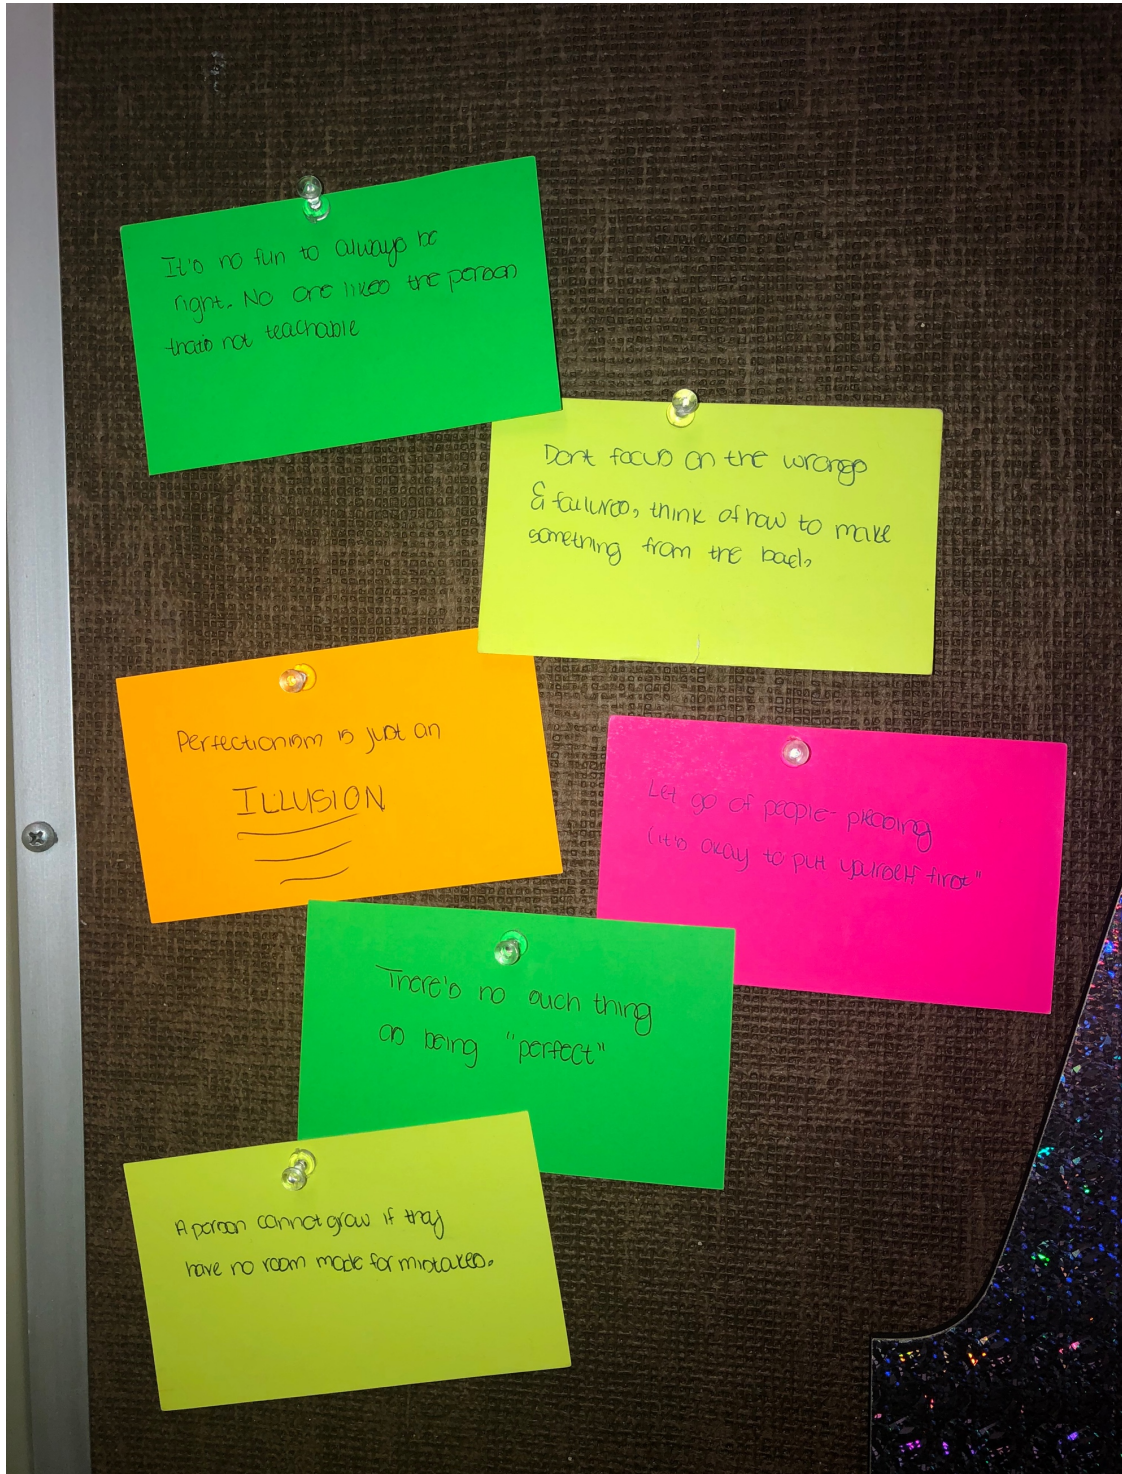 It's no fun to always be
right. No one likes the person
thats not teachable
Dont focus on the wrongs
& failures, think of how to make
something from the bad,
Perfectionism is just an
ILLUSION
Let go of people-pleasing
(it's okay to put yourself first"
There's no such thing
as being "perfect"
A person cannot grow if they
have no room made for mistakes.